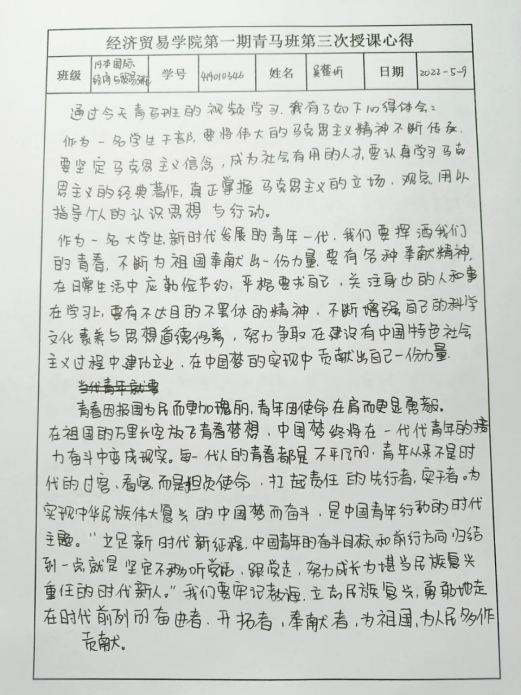 经济贸易学院第一期青马班第三次授课心得
班级 19本国际经济与贸易 学号 419010346 姓名 昕 日期 2022-5-9
通过今天青马班的视频学习,我有了如下心得体会:
作为一名学生干部,要将伟大的马克思主义精神不断传承,
要坚定马克思主义信念,成为社会有用的人才,要认真学习马克
思主义的经典著作,真正掌握马克思主义的立场、观点,用以
指导个人的认识思想与行动。
作为一名大学生,新时代发展的青年一代,我们要挥洒我们
的青春,不断为祖国奉献出一份力量,要有各种奉献精神,
在日常生活中应勤俭节约,严格要求自己,关注身边的人和事
在学习上,要有不达目的不罢休的精神,不断增强自己的科学
文化素养与思想道德修养,努力争取在建设有中国特色社会
主义过程中建功立业,在中国梦的实现中贡献出自己一份力量.
当代青年就要
青春因报国为民而更加瑰丽,青年因使命在肩而更显勇毅。
在祖国的万里长空放飞青春梦想,中国梦终将在一代代青年的接
力奋斗中变成现实。每一代人的青春都是不平凡的.青年从来不是时
代的过客、看客,而是担负使命、扛起责任的先行者,实干者。为
实现中华民族伟大复兴的中国梦而奋斗,是中国青年行动的时代
主题。“立足新时代新征程,中国青年的奋斗目标和前行方向归结
到一点就是坚定不移听党话,跟党走,努力成长为堪当民族复兴
重任的时代新人。”我们要牢记教诲,立志民族复兴,勇敢地走
在时代前列的奋进者、开拓者,奉献者,为祖国,为人民多作
贡献。